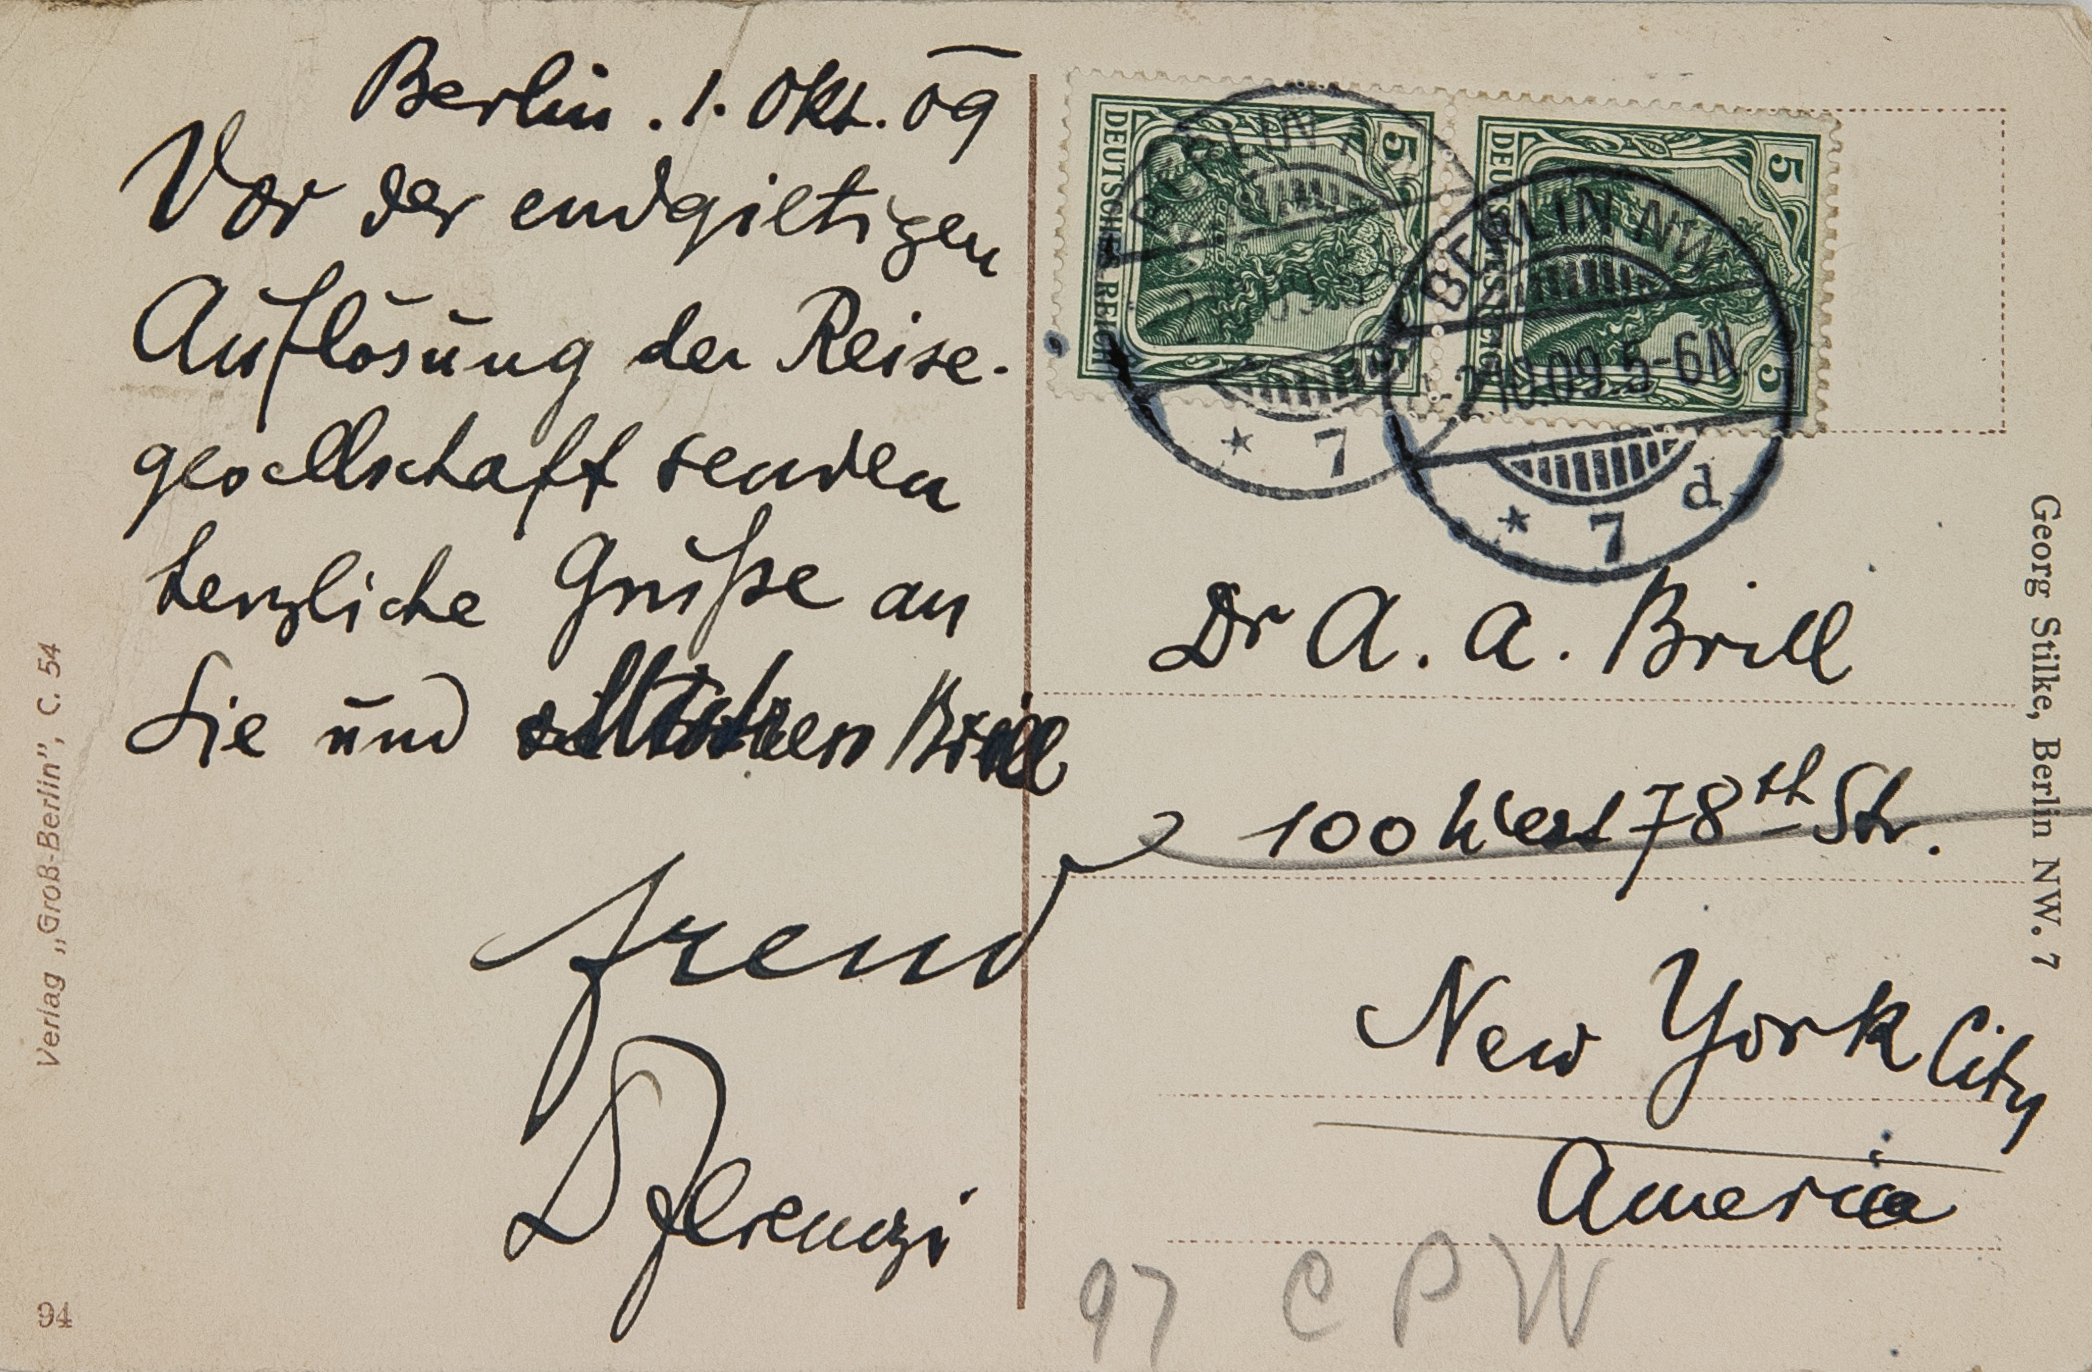 Berlin. 1. Okt. 09
Vor der endgiltigen
Auflösung der Reise-
gesellschaft senden
herzliche Grüße an
Sie und Brill
Freud
Dr Ferenczi
DEUTSCHES REICH
5
5
DEUTSCHES REICH
5
5
BERLIN
* 7
BERLIN NW
2.10.09.5-6N.
* 7 d
Dr A. A. Brill
100 West 78th Str.
New York City
America
97 C P W
Georg Stilke, Berlin NW. 7
Verlag „Groß-Berlin", C. 54
94